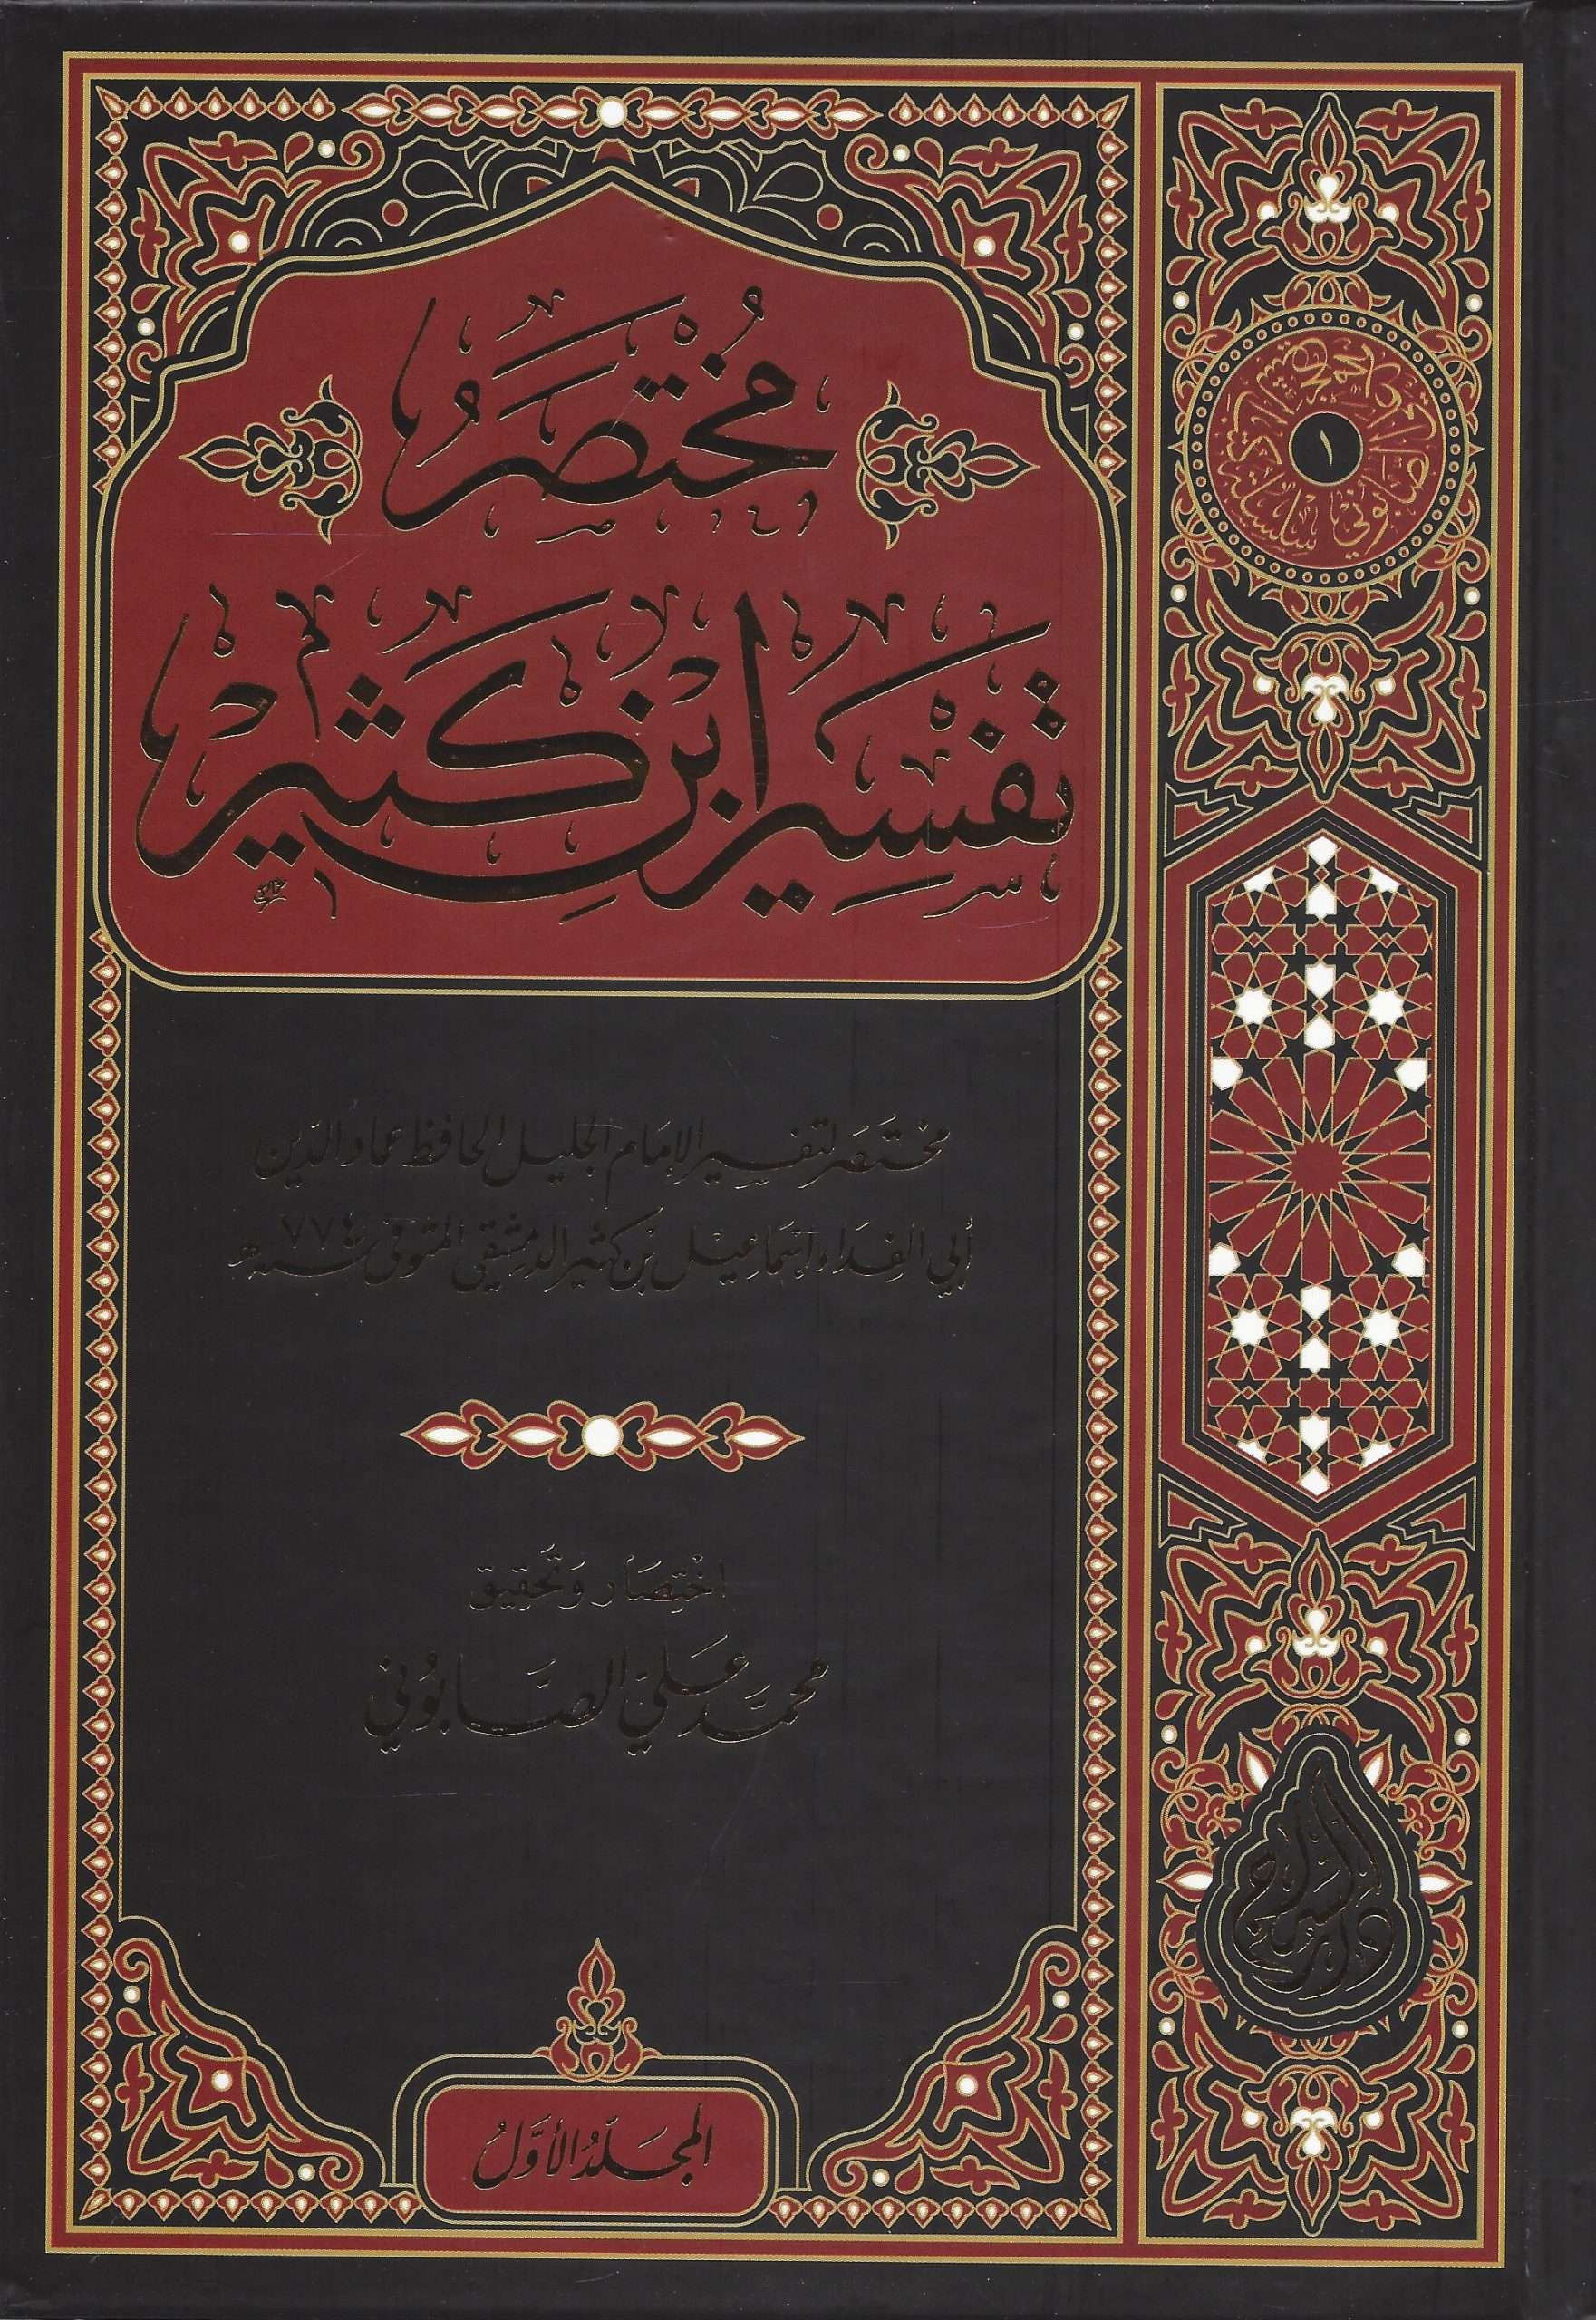 مُختصَرُ
تَفسِير ابْن كَثِير
مختصَر لتفسير الإمَام الجليل الحافظ عماد الدين
أبي الفِدَاء إسماعيل بن كثير الدمشقي المتوفى سنة ٧٧٤هـ
اختِصَار وَتحقيق
محمّد عَلي الصَّابُوني
المجَلّدُ الأوَّلُ
١
دار السلام